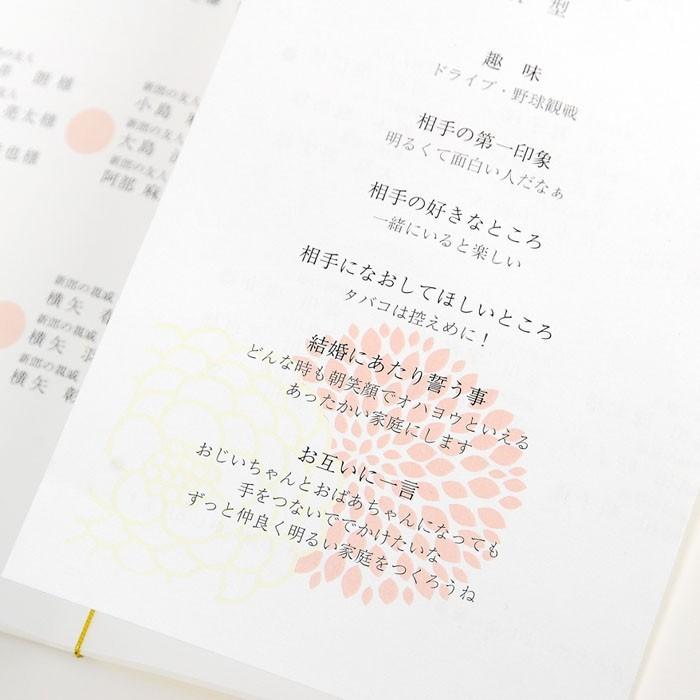 型
趣味
ドライブ・野球観戦
相手の第一印象
明るくて面白い人だなぁ
相手の好きなところ
一緒にいると楽しい
相手になおしてほしいところ
タバコは控えめに！
結婚にあたり誓う事
どんな時も朝笑顔でオハヨウといえる
あったかい家庭にします
お互いに一言
おじいちゃんとおばあちゃんになっても
手をつないででかけたいな
ずっと仲良く明るい家庭をつくろうね
新郎の友人
小島
新郎の友人
大島
新郎の友人
阿部 麻
亮太様
也様
新郎の親戚
横矢
新郎の親戚
横矢
新郎の親戚
横矢 彰